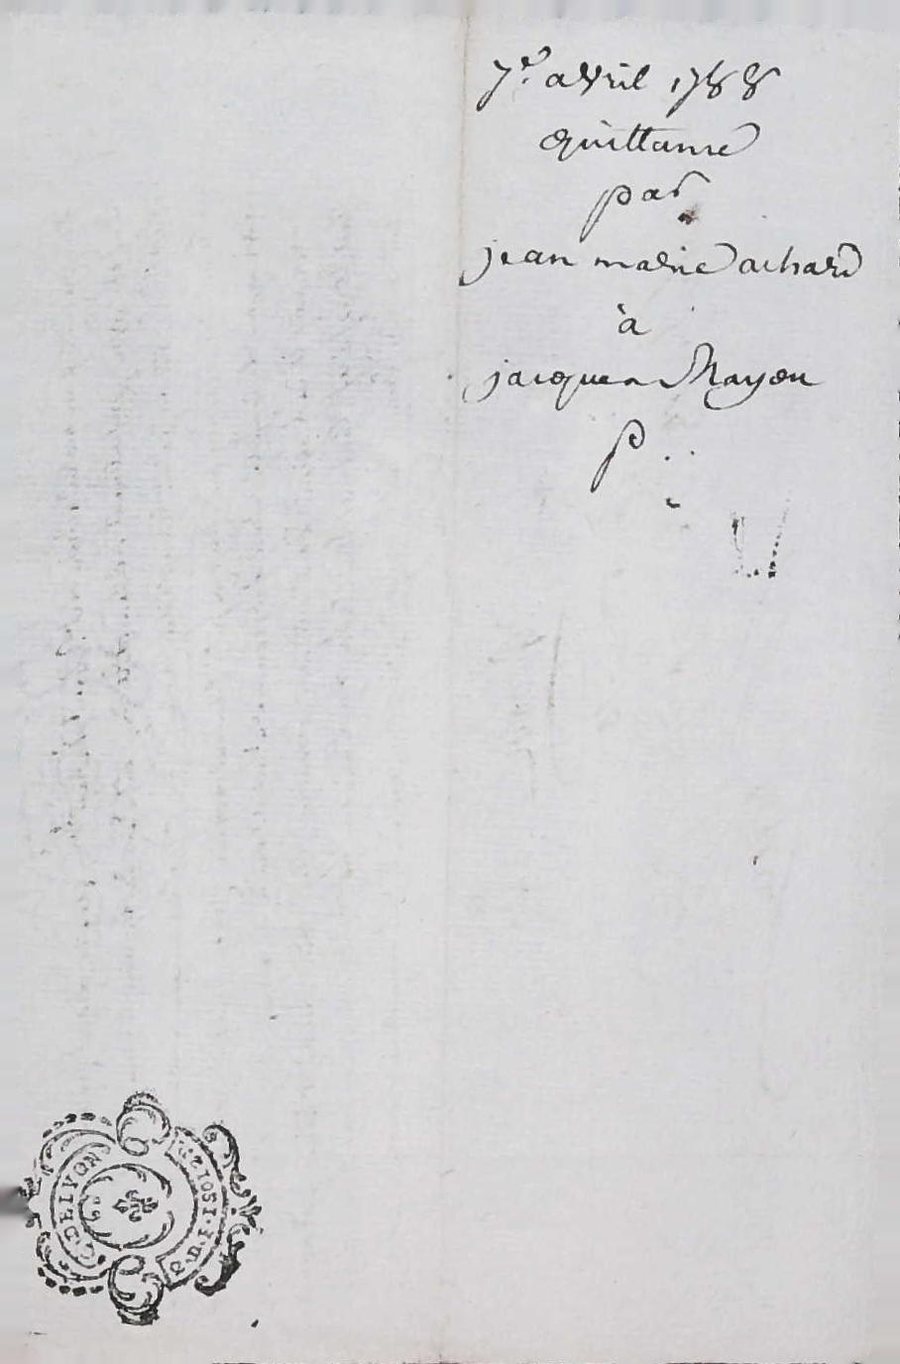 7e. avril 1788
quittance
par
jean marie achard
à
jacques Mayou
p
G. DE LYON